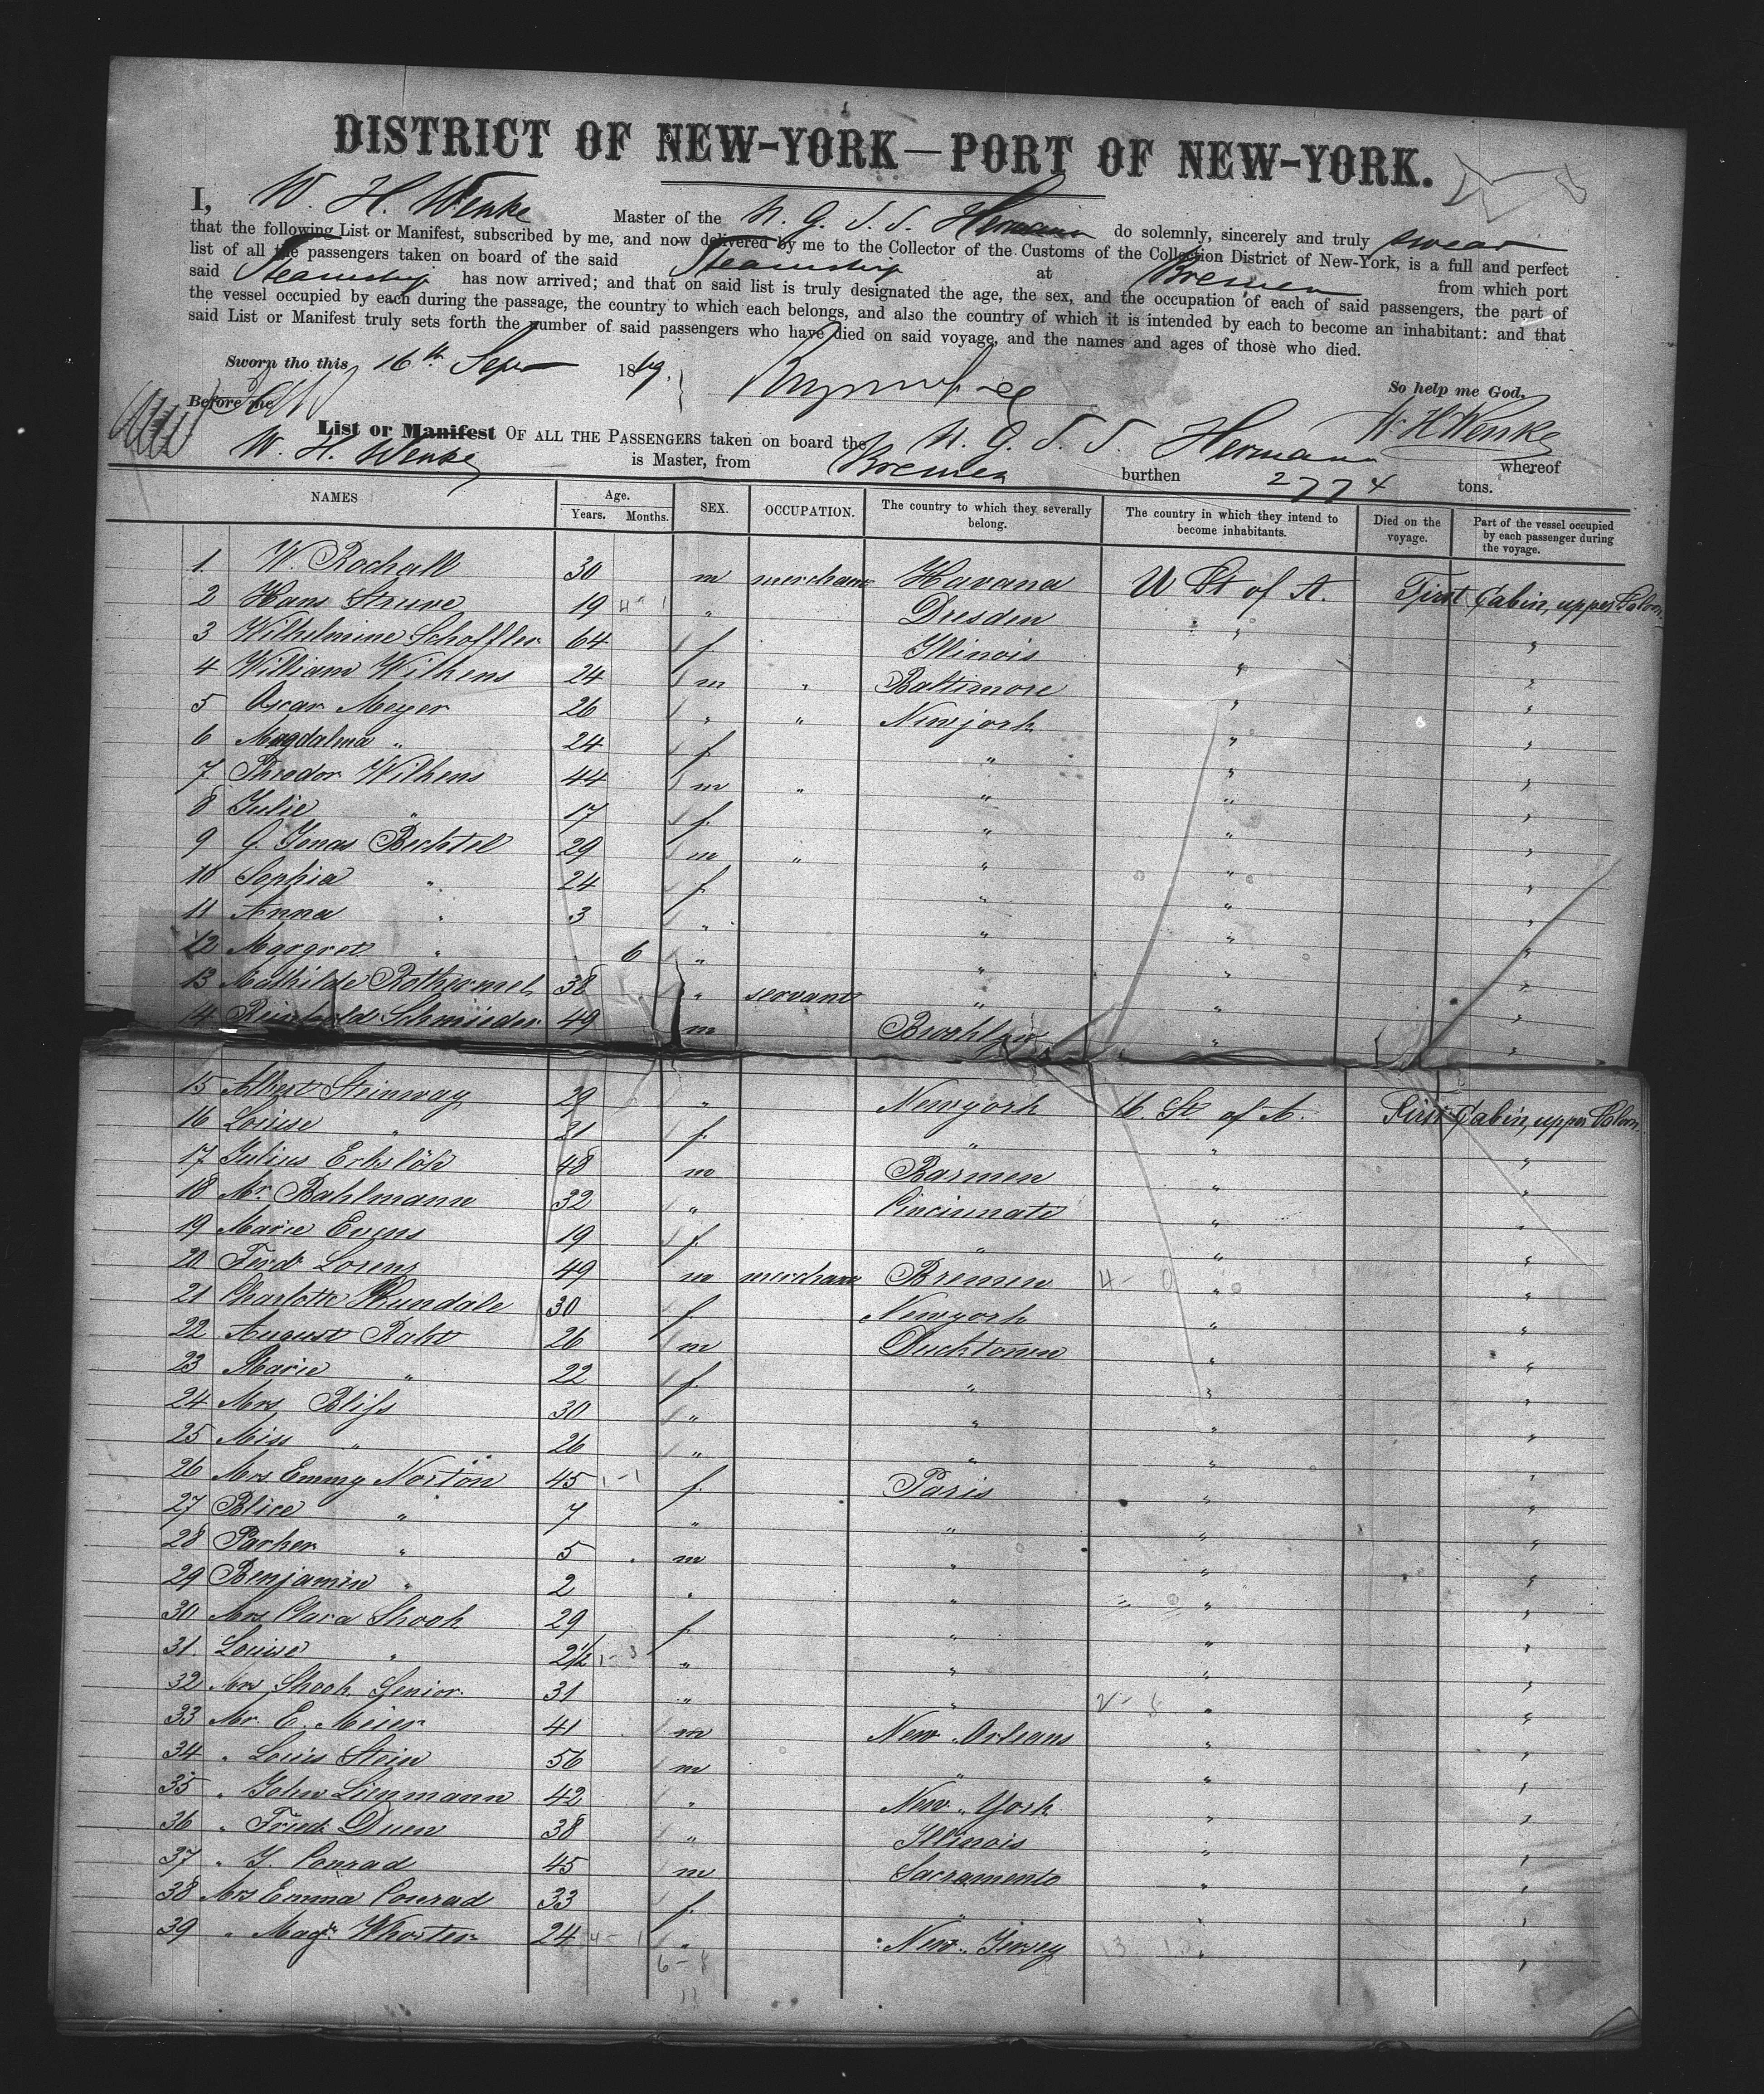 DISTRICT OF NEW-YORK—PORT OF NEW-YORK.
I, W. H. Wenke Master of the N. G. S. S. Hermann do solemnly, sincerely and truly swear
that the following List or Manifest, subscribed by me, and now delivered by me to the Collector of the Customs of the Collection District of New-York, is a full and perfect
list of all the passengers taken on board of the said Steamship at Bremen from which port
said Steamship has now arrived; and that on said list is truly designated the age, the sex, and the occupation of each of said passengers, the part of
the vessel occupied by each during the passage, the country to which each belongs, and also the country of which it is intended by each to become an inhabitant: and that
said List or Manifest truly sets forth the number of said passengers who have died on said voyage, and the names and ages of those who died.
Sworn tho this 16th Sepr 1869. So help me God,
Before me W. H. Wenke
List or Manifest OF ALL THE PASSENGERS taken on board the N. G. S. S. Hermann whereof
W. H. Wenke is Master, from Bremen burthen 2774 tons.
NAMES Age. Years. Months. SEX. OCCUPATION. The country to which they severally belong. The country in which they intend to become inhabitants. Died on the voyage. Part of the vessel occupied by each passenger during the voyage.
1 W. Rochall 30 m merchant Havana U St of A. First Cabin, upper Saloon
2 Hans Struve 19 " Dresden "
3 Wilhelmine Schoffler 64 f. Illinois " "
4 William Wilkens 24 m " Baltimore " "
5 Oscar Meyer 26 " " Newjork " "
6 Magdalena " 24 f. " " "
7 Theodor Wilkens 44 m " " " "
8 Julie " 17 f. " " "
9 G. Jonas Bechtel 29 m " " " "
10 Sophia " 24 f. " " "
11 Anna " 3 " " " "
12 Margret " 6 " " " "
13 Mathilde Rothermel 38 " servant " " "
14 Reinhold Schmieder 49 m Brooklyn " "
15 Albert Steinway 29 " Newyork U. St of A. First Cabin, upper Saloon
16 Louise " 21 f. " " "
17 Julius 48 m Barmen " "
18 Mr. Bahlmann 32 " Cincinnati " "
19 Marie Evens 19 f. " " "
20 Ferd. Lorenz 49 m merchant Bremen " "
21 Charlotte Rundale 30 f. Newyork " "
22 August Raht 26 m Ducktown " "
23 Marie " 22 f. " " "
24 Mrs Bliss 30 " " " "
25 Miss " 26 " " " "
26 Mrs Emmy Norton 45 f. Paris " "
27 Blice " 7 " " " "
28 Parker " 5 m " " "
29 Benjamin " 2 " " " "
30 Mrs Clara Shook 29 f. " " "
31. Louise " 2 1/2 " " " "
32 Mrs Shook Senior. 31 " " " "
33 Mr. E. Meier 41 m New Orleans " "
34 " Louis Stein 56 m " " "
35 " John Lienmann 42 " New York " "
36 " Friedr. Duen 38 " Illinois " "
37 " J. Conrad 45 m Sacramento " "
38 Mrs Emma Conrad 33 f. " " "
39 " Magd. Whorter 24 " New Jersey " "